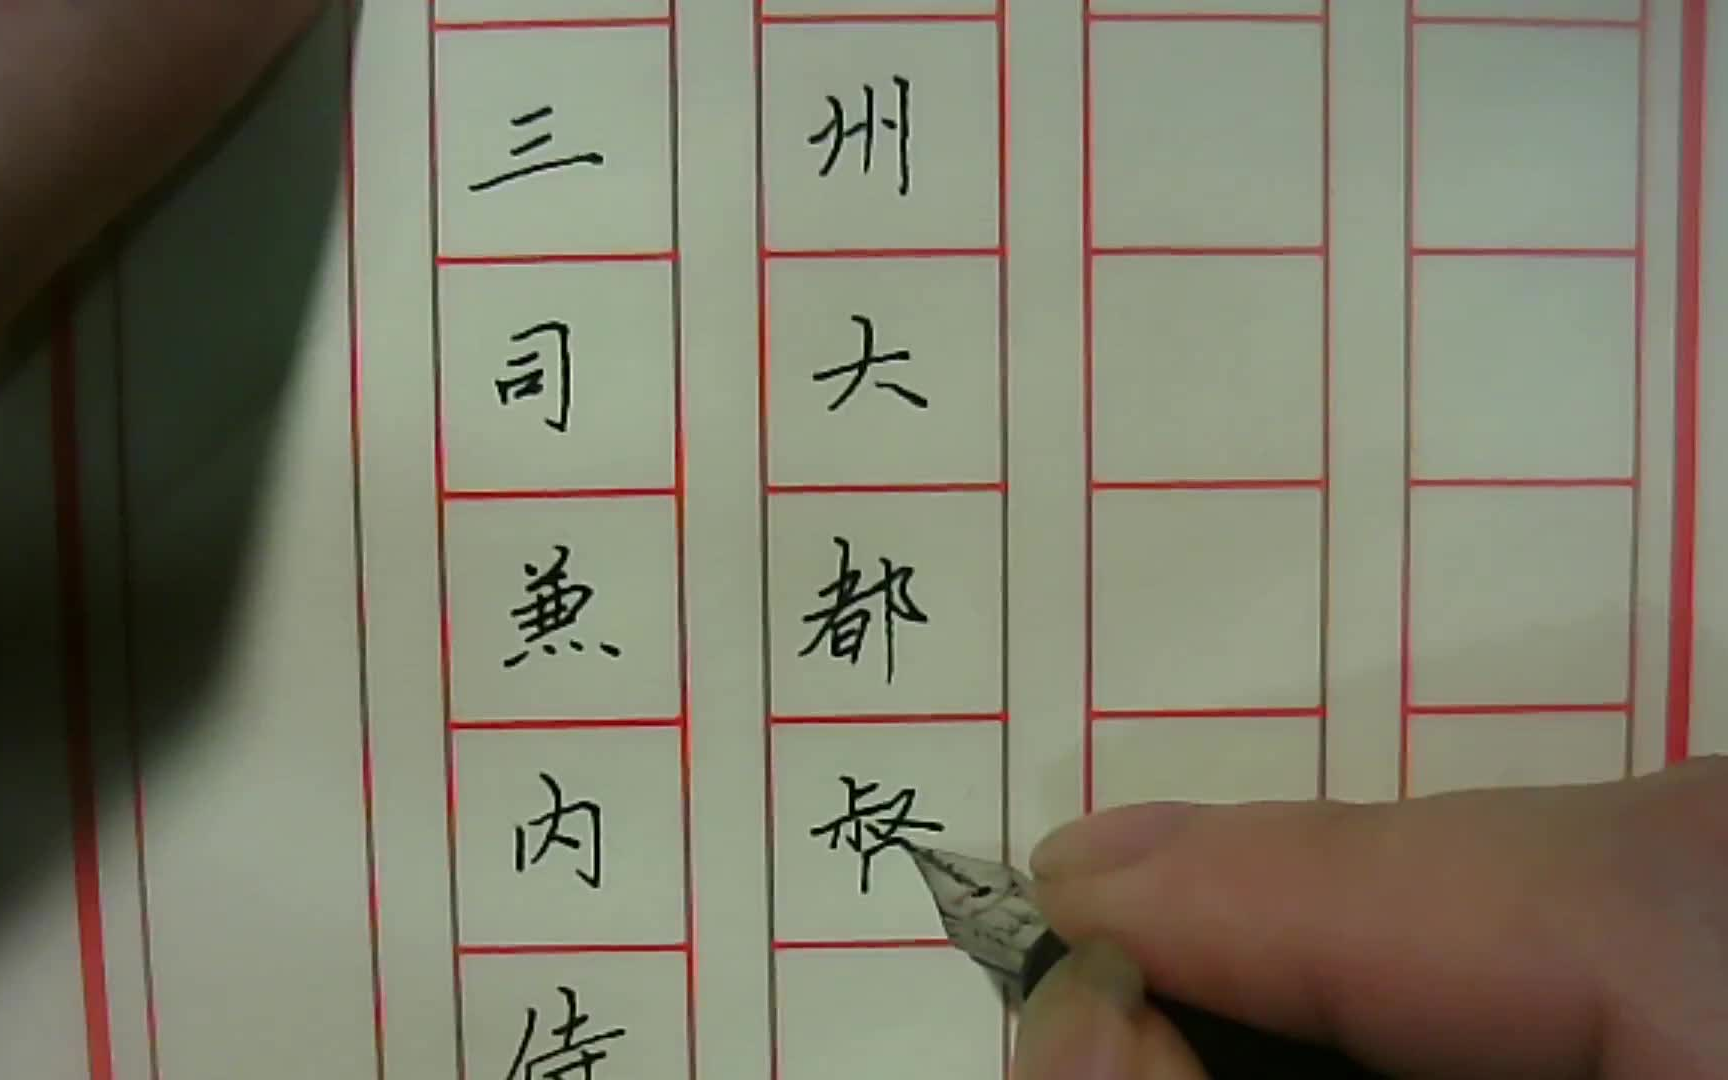 三司兼内侍
州大都叔